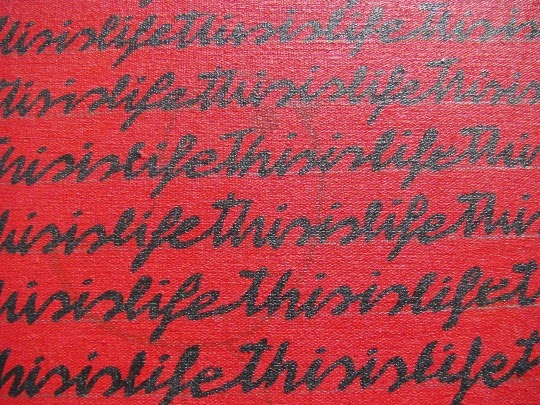 thisislifethisislifethisis
thisislifethisislifethisis
thisislifethisislifethis
thisislifethisislifethis
hisislifethisislifet
hisislifethisislifet